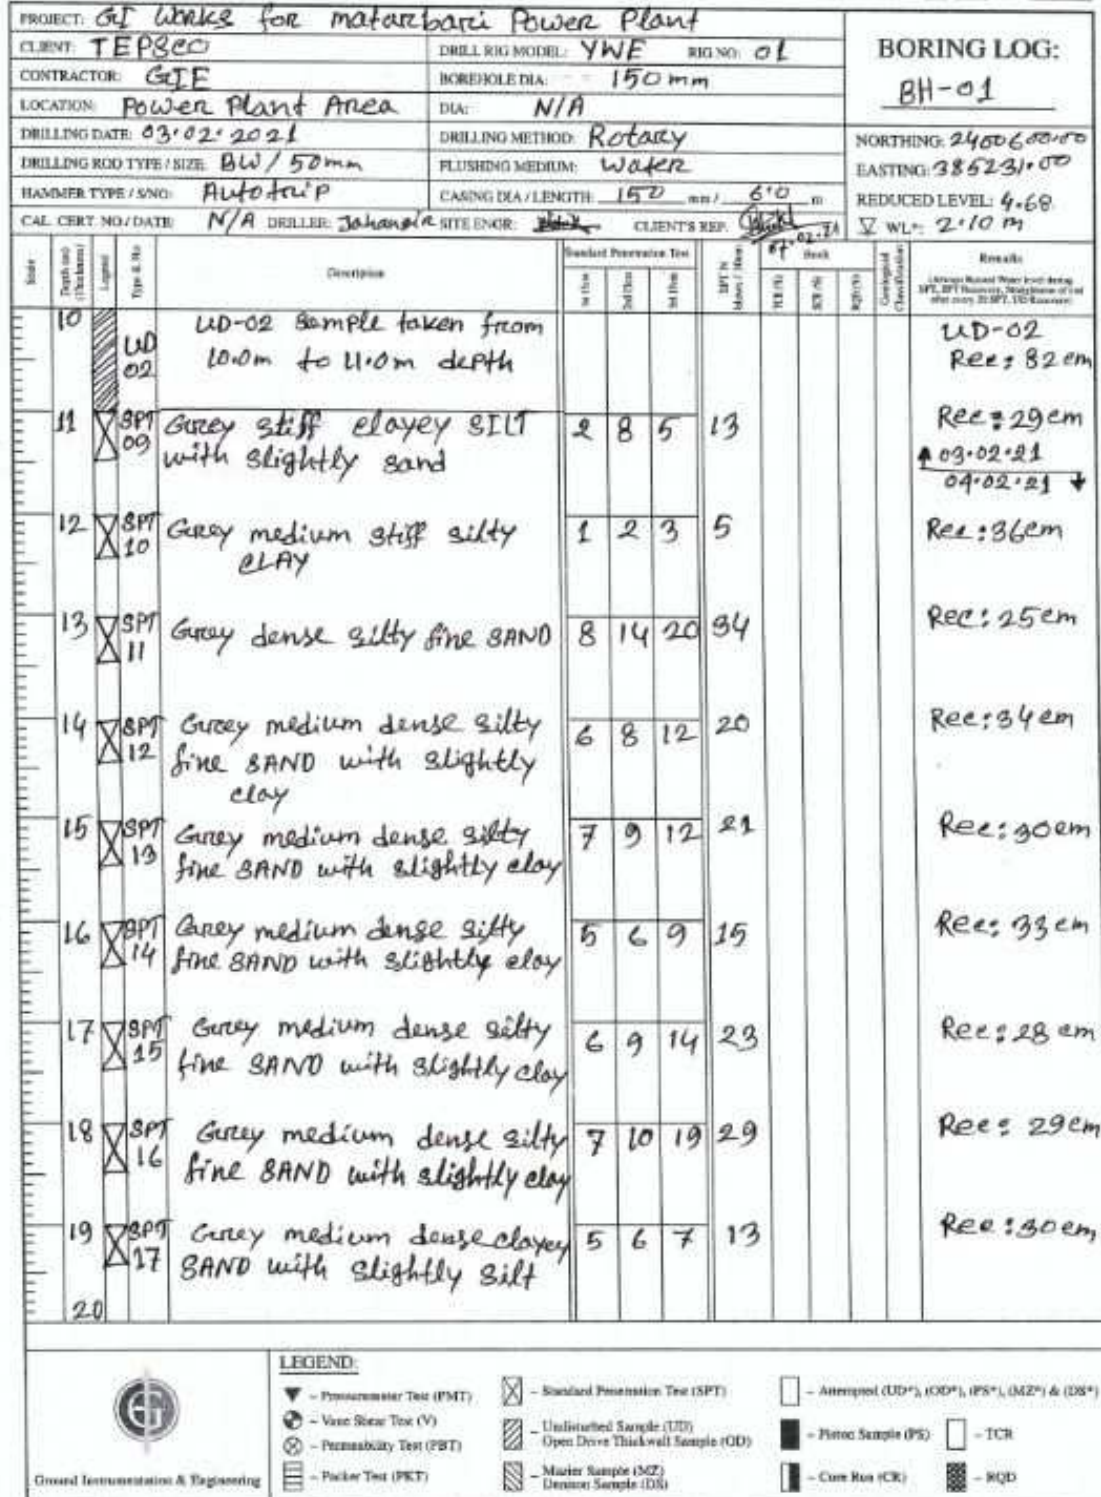 PROJECT: GI Works for matarbari Power Plant
CLIENT: TEPSCO
DRILL RIG MODEL: YWE RIG NO: 01
BORING LOG:
BH-01
CONTRACTOR: GIE
BOREHOLE DIA: 150 mm
LOCATION: Power Plant Area
DIA: N/A
DRILLING DATE: 03.02.2021
DRILLING METHOD: Rotary
NORTHING: 2400600.00
DRILLING ROD TYPE / SIZE: BW / 50mm
FLUSHING MEDIUM: Water
EASTING: 385231.00
HAMMER TYPE / S/NO: Autotrip
CASING DIA / LENGTH: 150 mm / 6.0 m
REDUCED LEVEL: 4.68
CAL. CERT. NO / DATE: N/A DRILLER: Jahangir SITE ENGR: CLIENT'S REP.
07.02.21
WL*: 2.10 m
Scale
Depth (m) (Thickness)
Legend
Type & No
Description
Standard Penetration Test
1st 15cm
2nd 15cm
3rd 15cm
SPT N blows / 30cm
Rock
TCR (%)
SCR (%)
RQD (%)
Geological Classification
Remarks
10 UD 02 UD-02 Sample taken from 10.0m to 11.0m depth
UD-02
Rec: 82 cm
11 SPT 09 Grey stiff clayey SILT with slightly sand 2 8 5 13 Rec: 29cm
03.02.21
04.02.21
12 SPT 10 Grey medium stiff silty CLAY 1 2 3 5 Rec: 36cm
13 SPT 11 Grey dense silty fine SAND 8 14 20 34 Rec: 25cm
14 SPT 12 Grey medium dense silty fine SAND with slightly clay 6 8 12 20 Rec: 34cm
15 SPT 13 Grey medium dense silty fine SAND with slightly clay 7 9 12 21 Rec: 30cm
16 SPT 14 Grey medium dense silty fine SAND with slightly clay 5 6 9 15 Rec: 33cm
17 SPT 15 Grey medium dense silty fine SAND with slightly clay 6 9 14 23 Rec: 28 cm
18 SPT 16 Grey medium dense silty fine SAND with slightly clay 7 10 19 29 Rec: 29cm
19 SPT 17 Grey medium dense clayey SAND with slightly silt 5 6 7 13 Rec: 30cm
20
LEGEND:
– Pressuremeter Test (PMT)
– Vane Shear Test (V)
– Permeability Test (PBT)
– Packer Test (PKT)
– Standard Penetration Test (SPT)
– Undisturbed Sample (UD)
Open Drive Thickwall Sample (OD)
– Mazier Sample (MZ)
Denison Sample (DS)
– Attempted (UD*), (OD*), (PS*), (MZ*) & (DS*)
– Piston Sample (PS)
– TCR
– Core Run (CR)
– RQD
Ground Instrumentation & Engineering